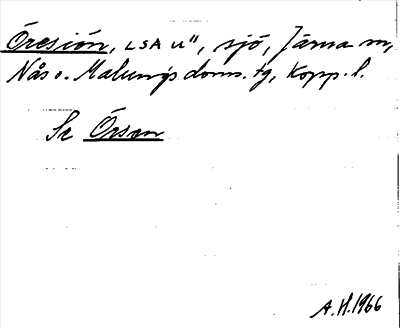 Öresjön, LSA u", sjö, Järna sn,
Nås o. Malungs doms. tg, Kopp. l.
Se Örsen
A.H. 1966